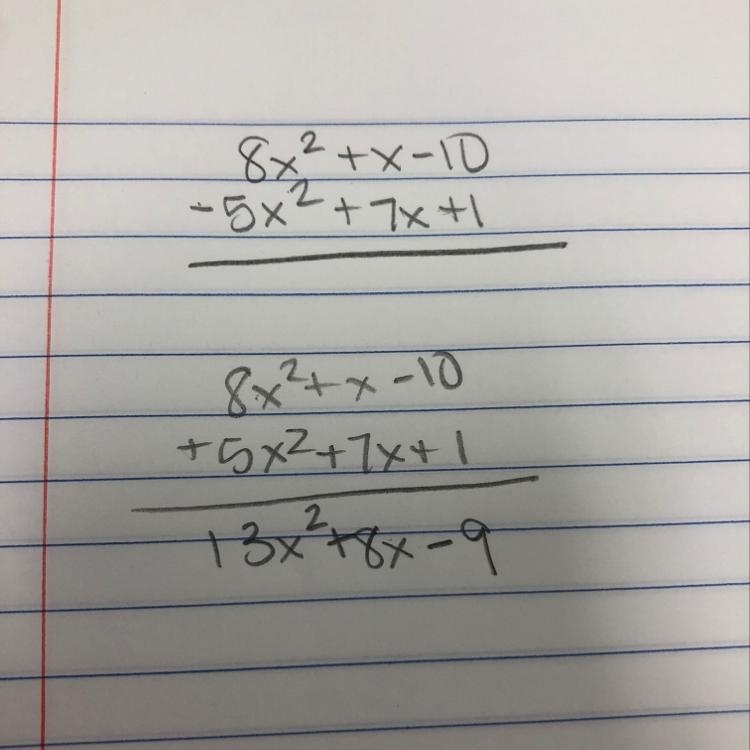 8x² + x - 10
- 5x² + 7x + 1
8x² + x - 10
+ 5x² + 7x + 1
13x² + 8x - 9